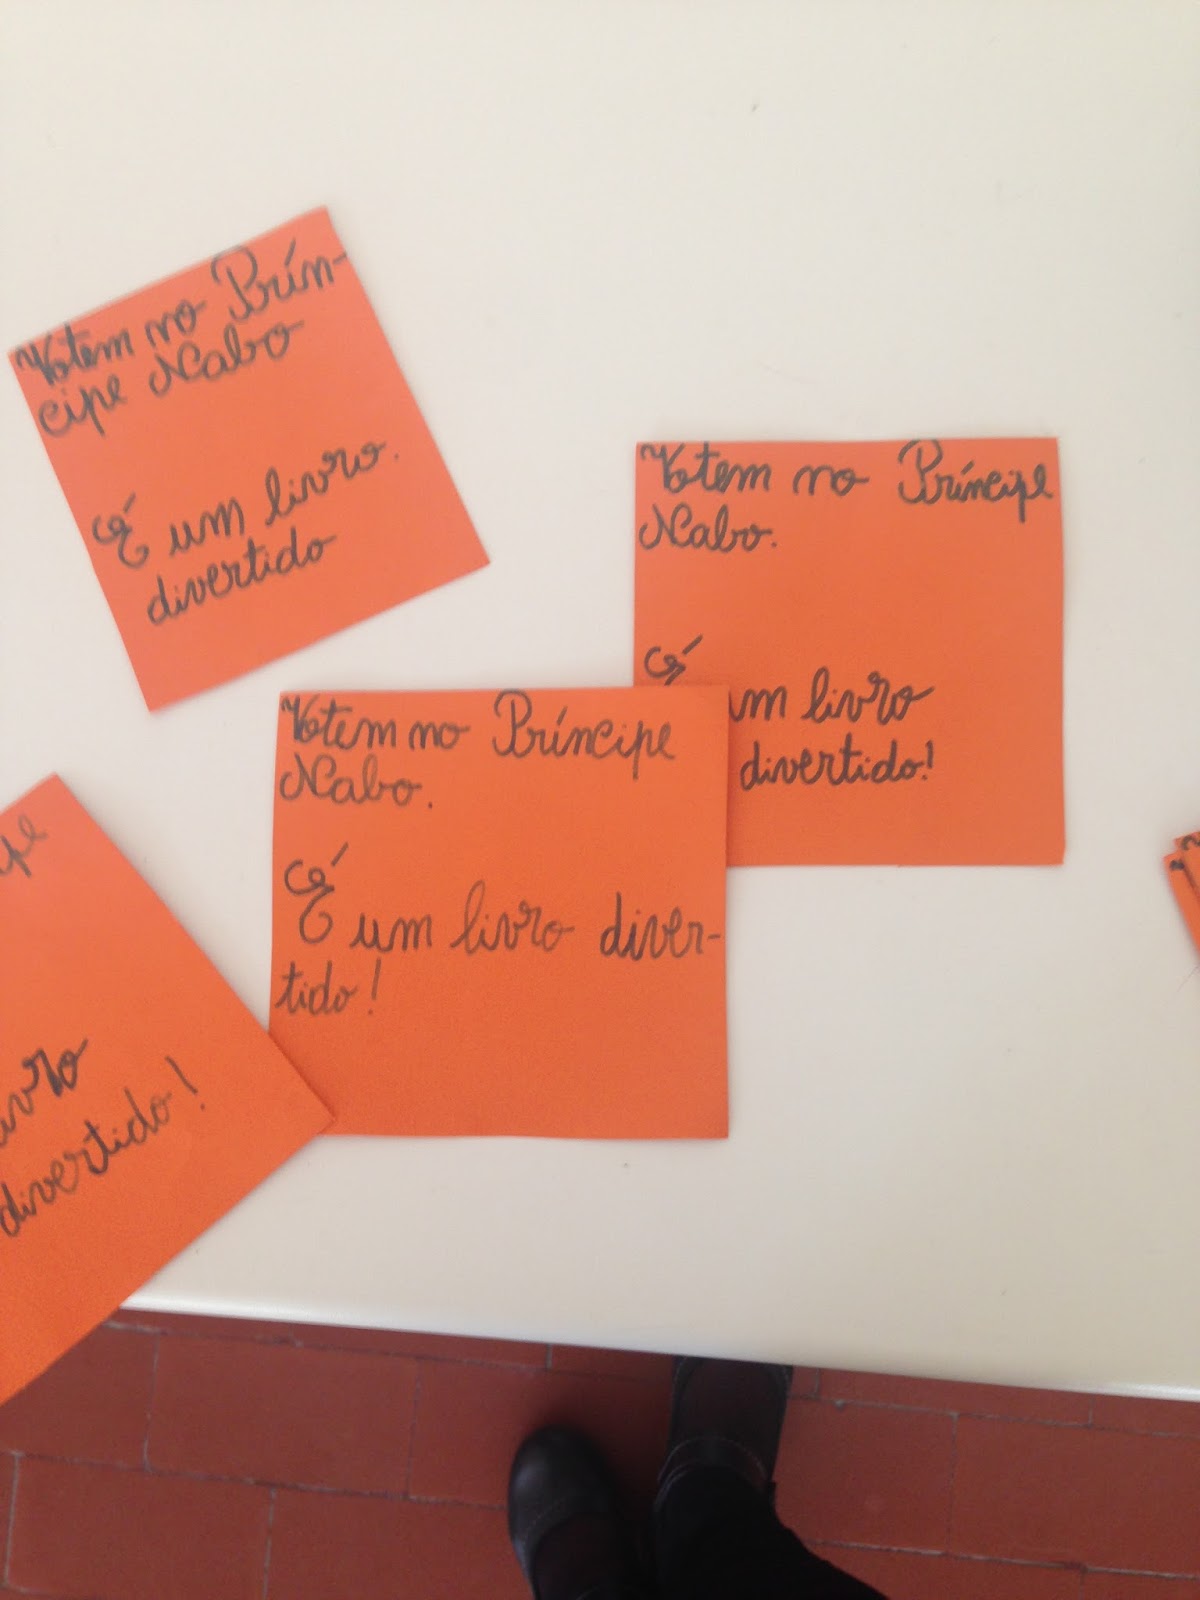 Votem no Prín-
cipe Nabo
É um livro.
divertido
Votem no Príncipe
Nabo.
É um livro
divertido!
Votem no Príncipe
Nabo.
É um livro diver-
tido!
divertido!